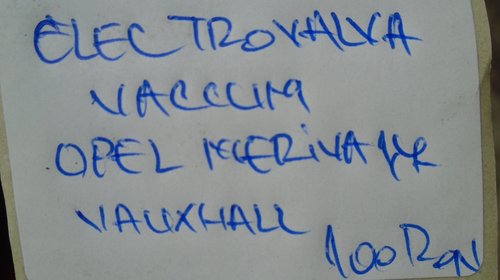 ELECTROVALVA
VACCUM
OPEL MERIVA
VAUXHALL
100 RON